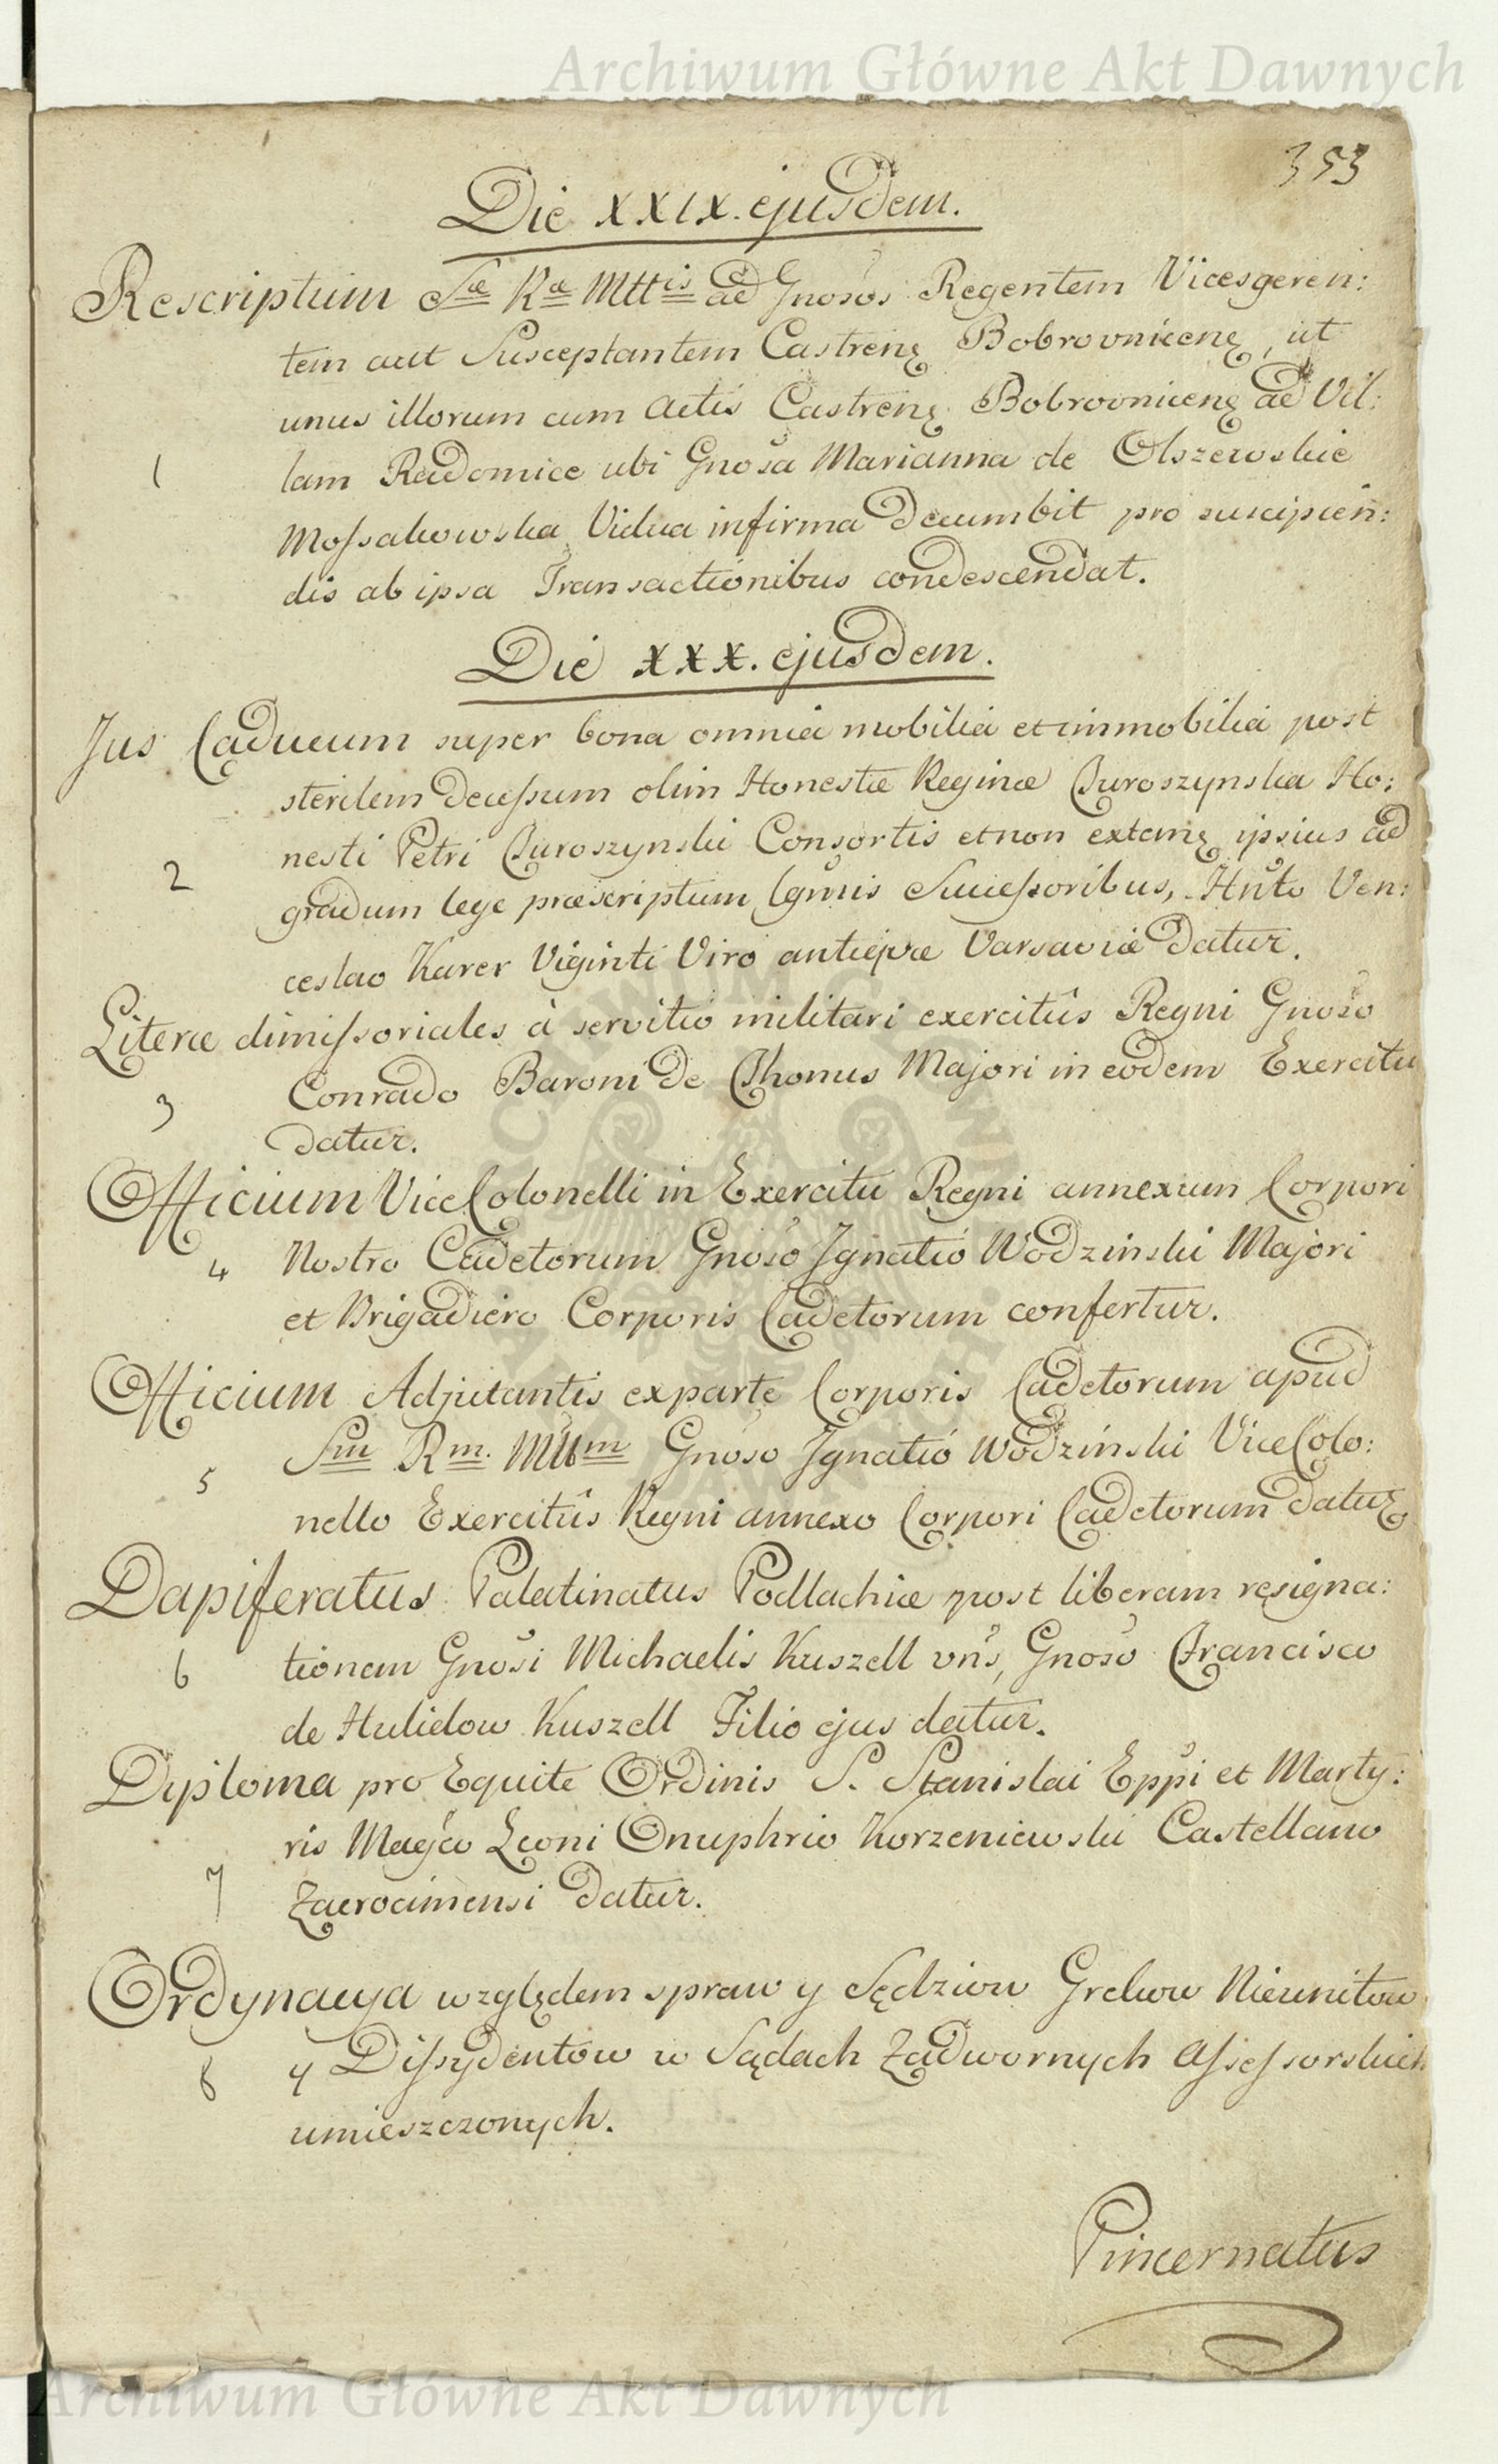 Archiwum Główne Akt Dawnych
353
Die XXIX. ejusdem.
Rescriptum Sæ Ræ Mttis ad Gnosos Regentem Vicesgeren:
tem aut Susceptantem Castrenę Bobrovnicenę, ut
unus illorum cum Actis Castrenę Bobrovnicenę ad Vil:
1 lam Radomice ubi Gnosa Marianna de Olszewskie
Mossakowska Vidua infirma decumbit pro suscipien:
dis ab ipsa Transactionibus condescendat.
Die XXX. ejusdem.
Jus Caducum super bona omnia mobilia et immobilia post
sterilem decessum olim Honestæ Reginæ Juroszynska Ho:
nesti Petri Juroszynski Consortis et non extanę ipsius ad
2 gradum lege præscriptum Successoribus, Hnto Ven:
ceslao Karer Viginti Viro antiqvæ Varsaviæ datur.
Literæ dimissoriales à servitio militari exercitûs Regni Gnoso
Conrado Baroni de Majori in eodem Exercitu
3 datur.
Officium ViceColonelli in Exercitu Regni annexum Corpori
4 Nostro Cadetorum Gnoso Ignatio Wodzinski Majori
et Brigadiero Corporis Cadetorum confertur.
Officium Adjutantis exparte Corporis Cadetorum apud
Sm Rm. Mttm Gnoso Ignatio Wodzinski ViceColo:
5 nello Exercitûs Regni annexo Corpori Cadetorum datur
Dapiferatus Palatinatus Podlachiæ post liberam resigna:
6 tionem Gnosi Michaelis Kuszell vns, Gnoso Francisco
de Hulidow Kuszell Filio ejus datur.
Diploma pro Equite Ordinis S. Stanislai Eppi et Marty:
ris Magco Leoni Onuphrio Korzeniewski Castellano
7 Zacrocimensi datur.
Ordynacya względem spraw y Sędziow Grekow Nieunitow
8 y Dissydentow w Sądach Zadwornych Assessorskich
umieszczonych.
Pincernatus
Archiwum Główne Akt Dawnych